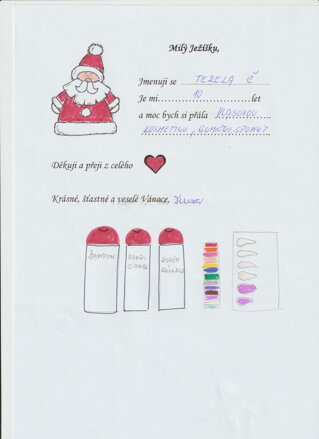 Milý Ježíšku,
Jmenuji se TEREZA Č
Je mi 10 let
a moc bych si přála VLASOVOU
KOSMETIKU, GUMIČKY, SPONKY
Děkuji a přeji z celého
Krásné, šťastné a veselé Vánoce, Tereza
ŠAMPON
KONDI
CIONER